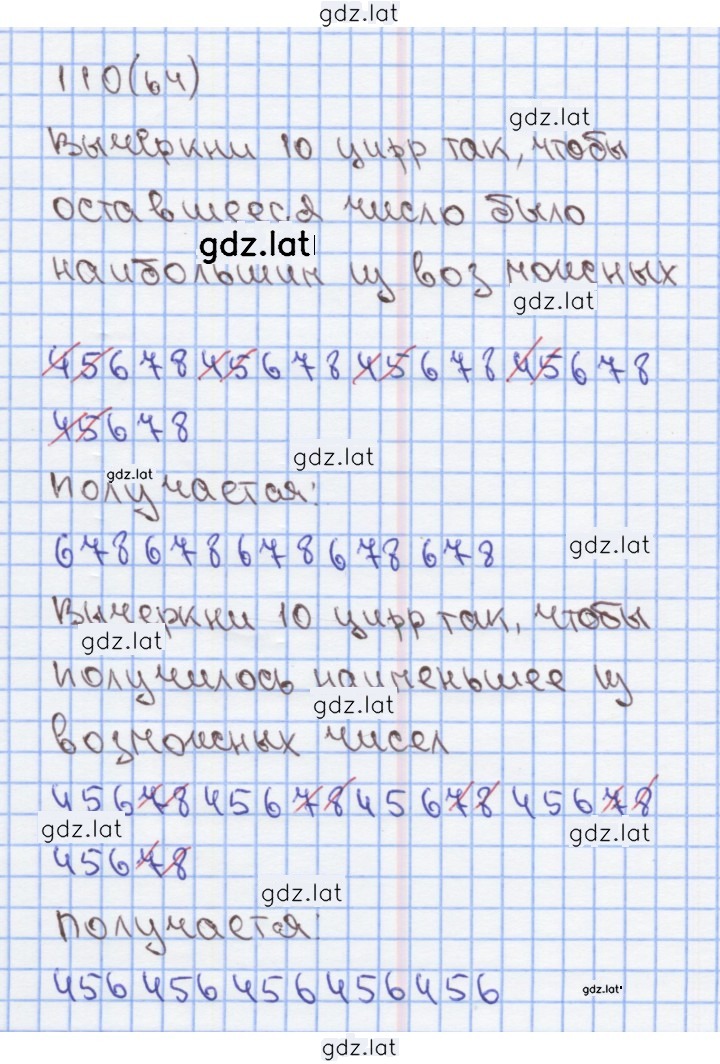 gdz.lat
110(64)
gdz.lat
Вычеркни 10 цифр так, чтобы
оставшееся число было
gdz.lat
наибольшим из возможных
gdz.lat
45678 45678 45678 45678
45678
gdz.lat
gdz.lat
получается:
678 678 678 678 678
gdz.lat
Вычеркни 10 цифр так, чтобы
gdz.lat
получилось наименьшее из
gdz.lat
возможных чисел
45678 45678 45678 45678
gdz.lat
gdz.lat
45678
gdz.lat
получается:
456 456 456 456 456
gdz.lat
gdz.lat